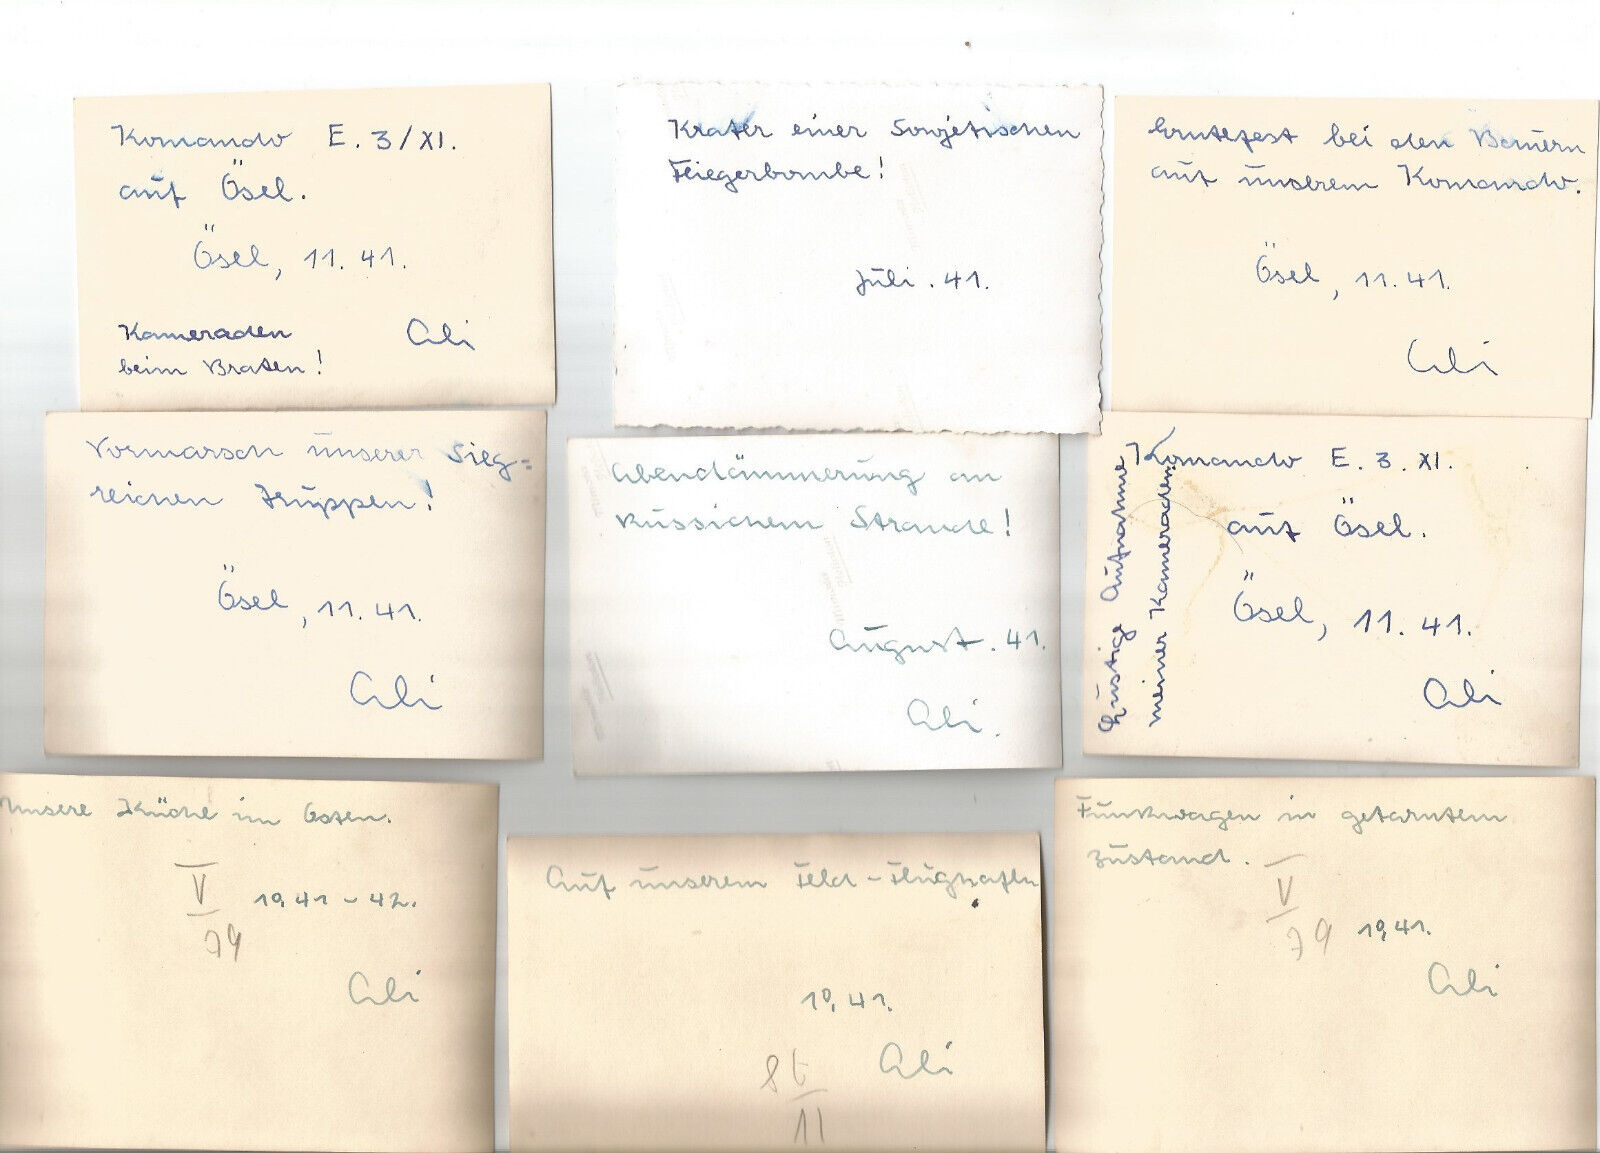 Komando E. 3/XI.
auf Ösel.
Ösel, 11. 41.
Kameraden
beim Braten!
Ali
Krater einer Sowjetischen
Fliegerbombe!
Juli. 41.
Erntefest bei den Bauern
auf unserem Komando.
Ösel, 11. 41.
Ali
Vormarsch unserer Sieg=
reichen Truppen!
Ösel, 11. 41.
Ali
Abendämmerung am
Russichem Strande!
August. 41.
Ali.
Komando E. 3. XI.
auf Ösel.
Ösel, 11. 41.
Ali
Lustige Aufnahme
meiner Kameraden.
Unsere Küche im Osten.
V
79
10, 41 - 42.
Ali
Auf unserem Feld-Flughafen
10, 41.
Ali
11
Funkwagen in getarntem
Zustand.
V
79
10, 41.
Ali